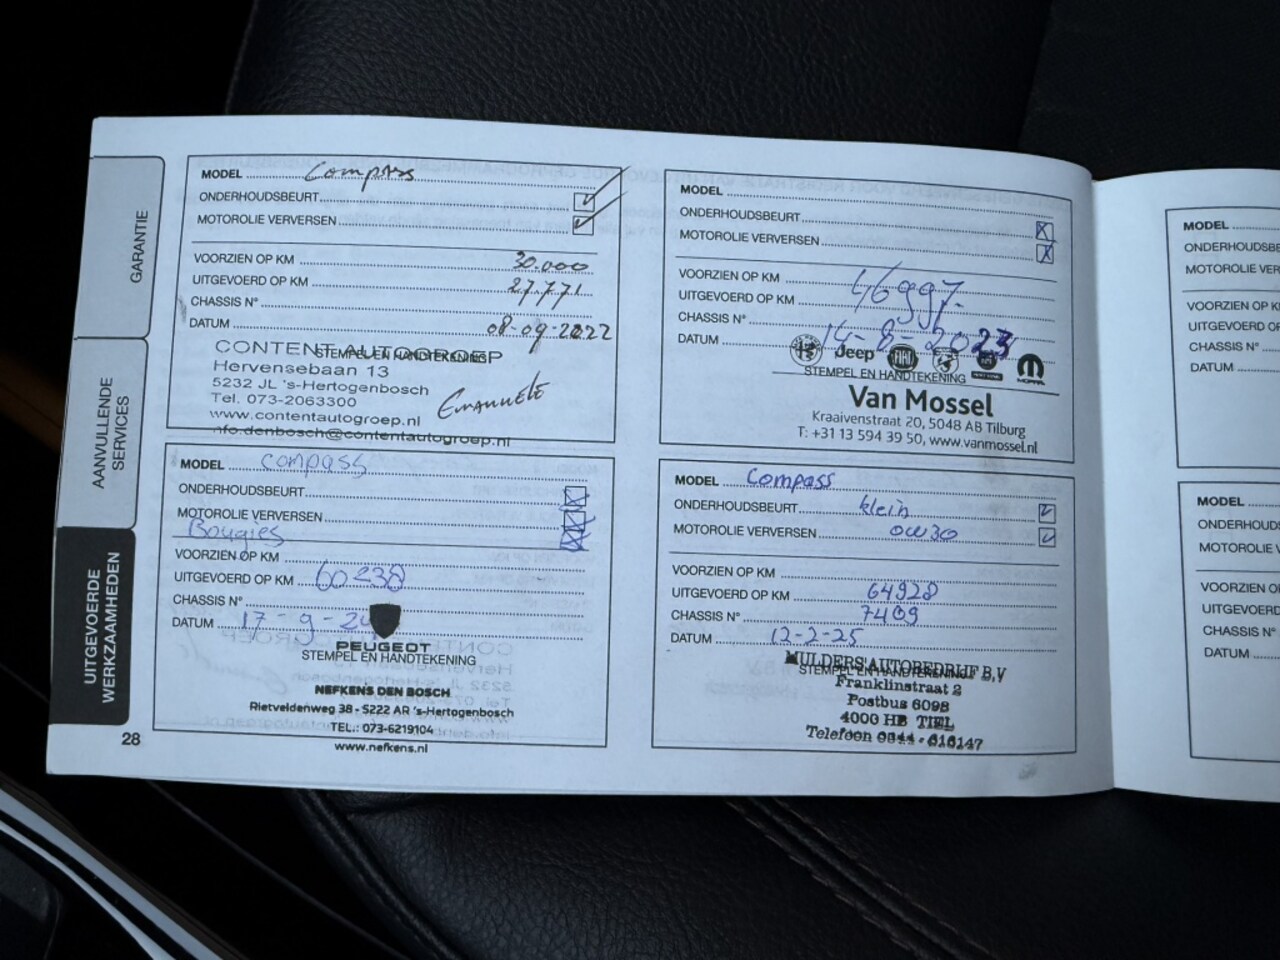 GARANTIE
AANVULLENDE
SERVICES
UITGEVOERDE
WERKZAAMHEDEN
28
MODEL Compass
ONDERHOUDSBEURT
MOTOROLIE VERVERSEN
VOORZIEN OP KM 30.000
UITGEVOERD OP KM 27.771
CHASSIS N°
DATUM 08-09-2022
STEMPEL EN HANDTEKENING
CONTENT AUTOGROEP
Hervensebaan 13
5232 JL 's-Hertogenbosch
Tel. 073-2063300
www.contentautogroep.nl
nfo.denbosch@contentautogroep.nl
MODEL
ONDERHOUDSBEURT
MOTOROLIE VERVERSEN
VOORZIEN OP KM
UITGEVOERD OP KM 46997
CHASSIS N°
DATUM 14-8-2023
Jeep FIAT MOPAR
STEMPEL EN HANDTEKENING
Van Mossel
Kraaivenstraat 20, 5048 AB Tilburg
T: +31 13 594 39 50, www.vanmossel.nl
MODEL compass
ONDERHOUDSBEURT
MOTOROLIE VERVERSEN
Bougies
VOORZIEN OP KM
UITGEVOERD OP KM 60238
CHASSIS N°
DATUM 17-9-24
PEUGEOT
STEMPEL EN HANDTEKENING
NEFKENS DEN BOSCH
Rietveldenweg 38 - 5222 AR 's-Hertogenbosch
TEL.: 073-6219104
www.nefkens.nl
MODEL Compass
ONDERHOUDSBEURT klein
MOTOROLIE VERVERSEN 0W30
VOORZIEN OP KM
UITGEVOERD OP KM 64928
CHASSIS N° 7409
DATUM 12-2-25
STEMPEL EN HANDTEKENING
MULDERS AUTOBEDRIJF B.V.
Franklinstraat 2
Postbus 6098
4000 HB TIEL
Telefoon 0344 - 616147
MODEL
ONDERHOUDSBE
MOTOROLIE VER
VOORZIEN OP K
UITGEVOERD OP
CHASSIS N°
DATUM
MODEL
ONDERHOUDS
MOTOROLIE V
VOORZIEN OF
UITGEVOERD
CHASSIS N°
DATUM